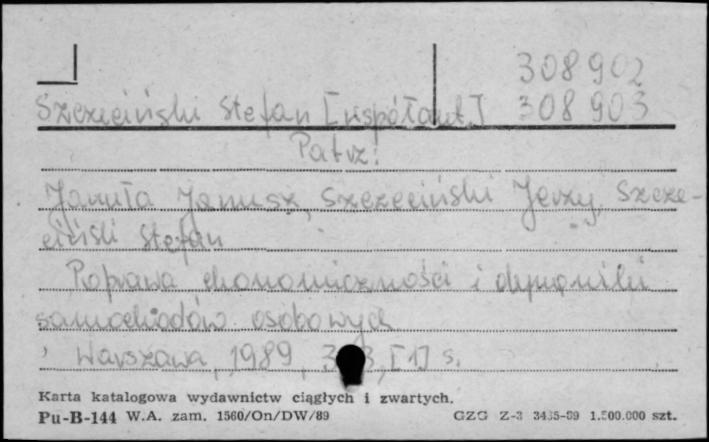 308902
Szczeciński Stefan [współaut.] 308903
Patrz:
Januła Janusz, Szczeciński Jerzy, Szcze-
ciński Stefan
Poprawa ekonomiczności i dynamiki
samochodów osobowych
Warszawa, 1989, [1] s.
Karta katalogowa wydawnictw ciągłych i zwartych.
Pu-B-144 W.A. zam. 1560/On/DW/89 GZG Z-3 3435-89 1.500.000 szt.